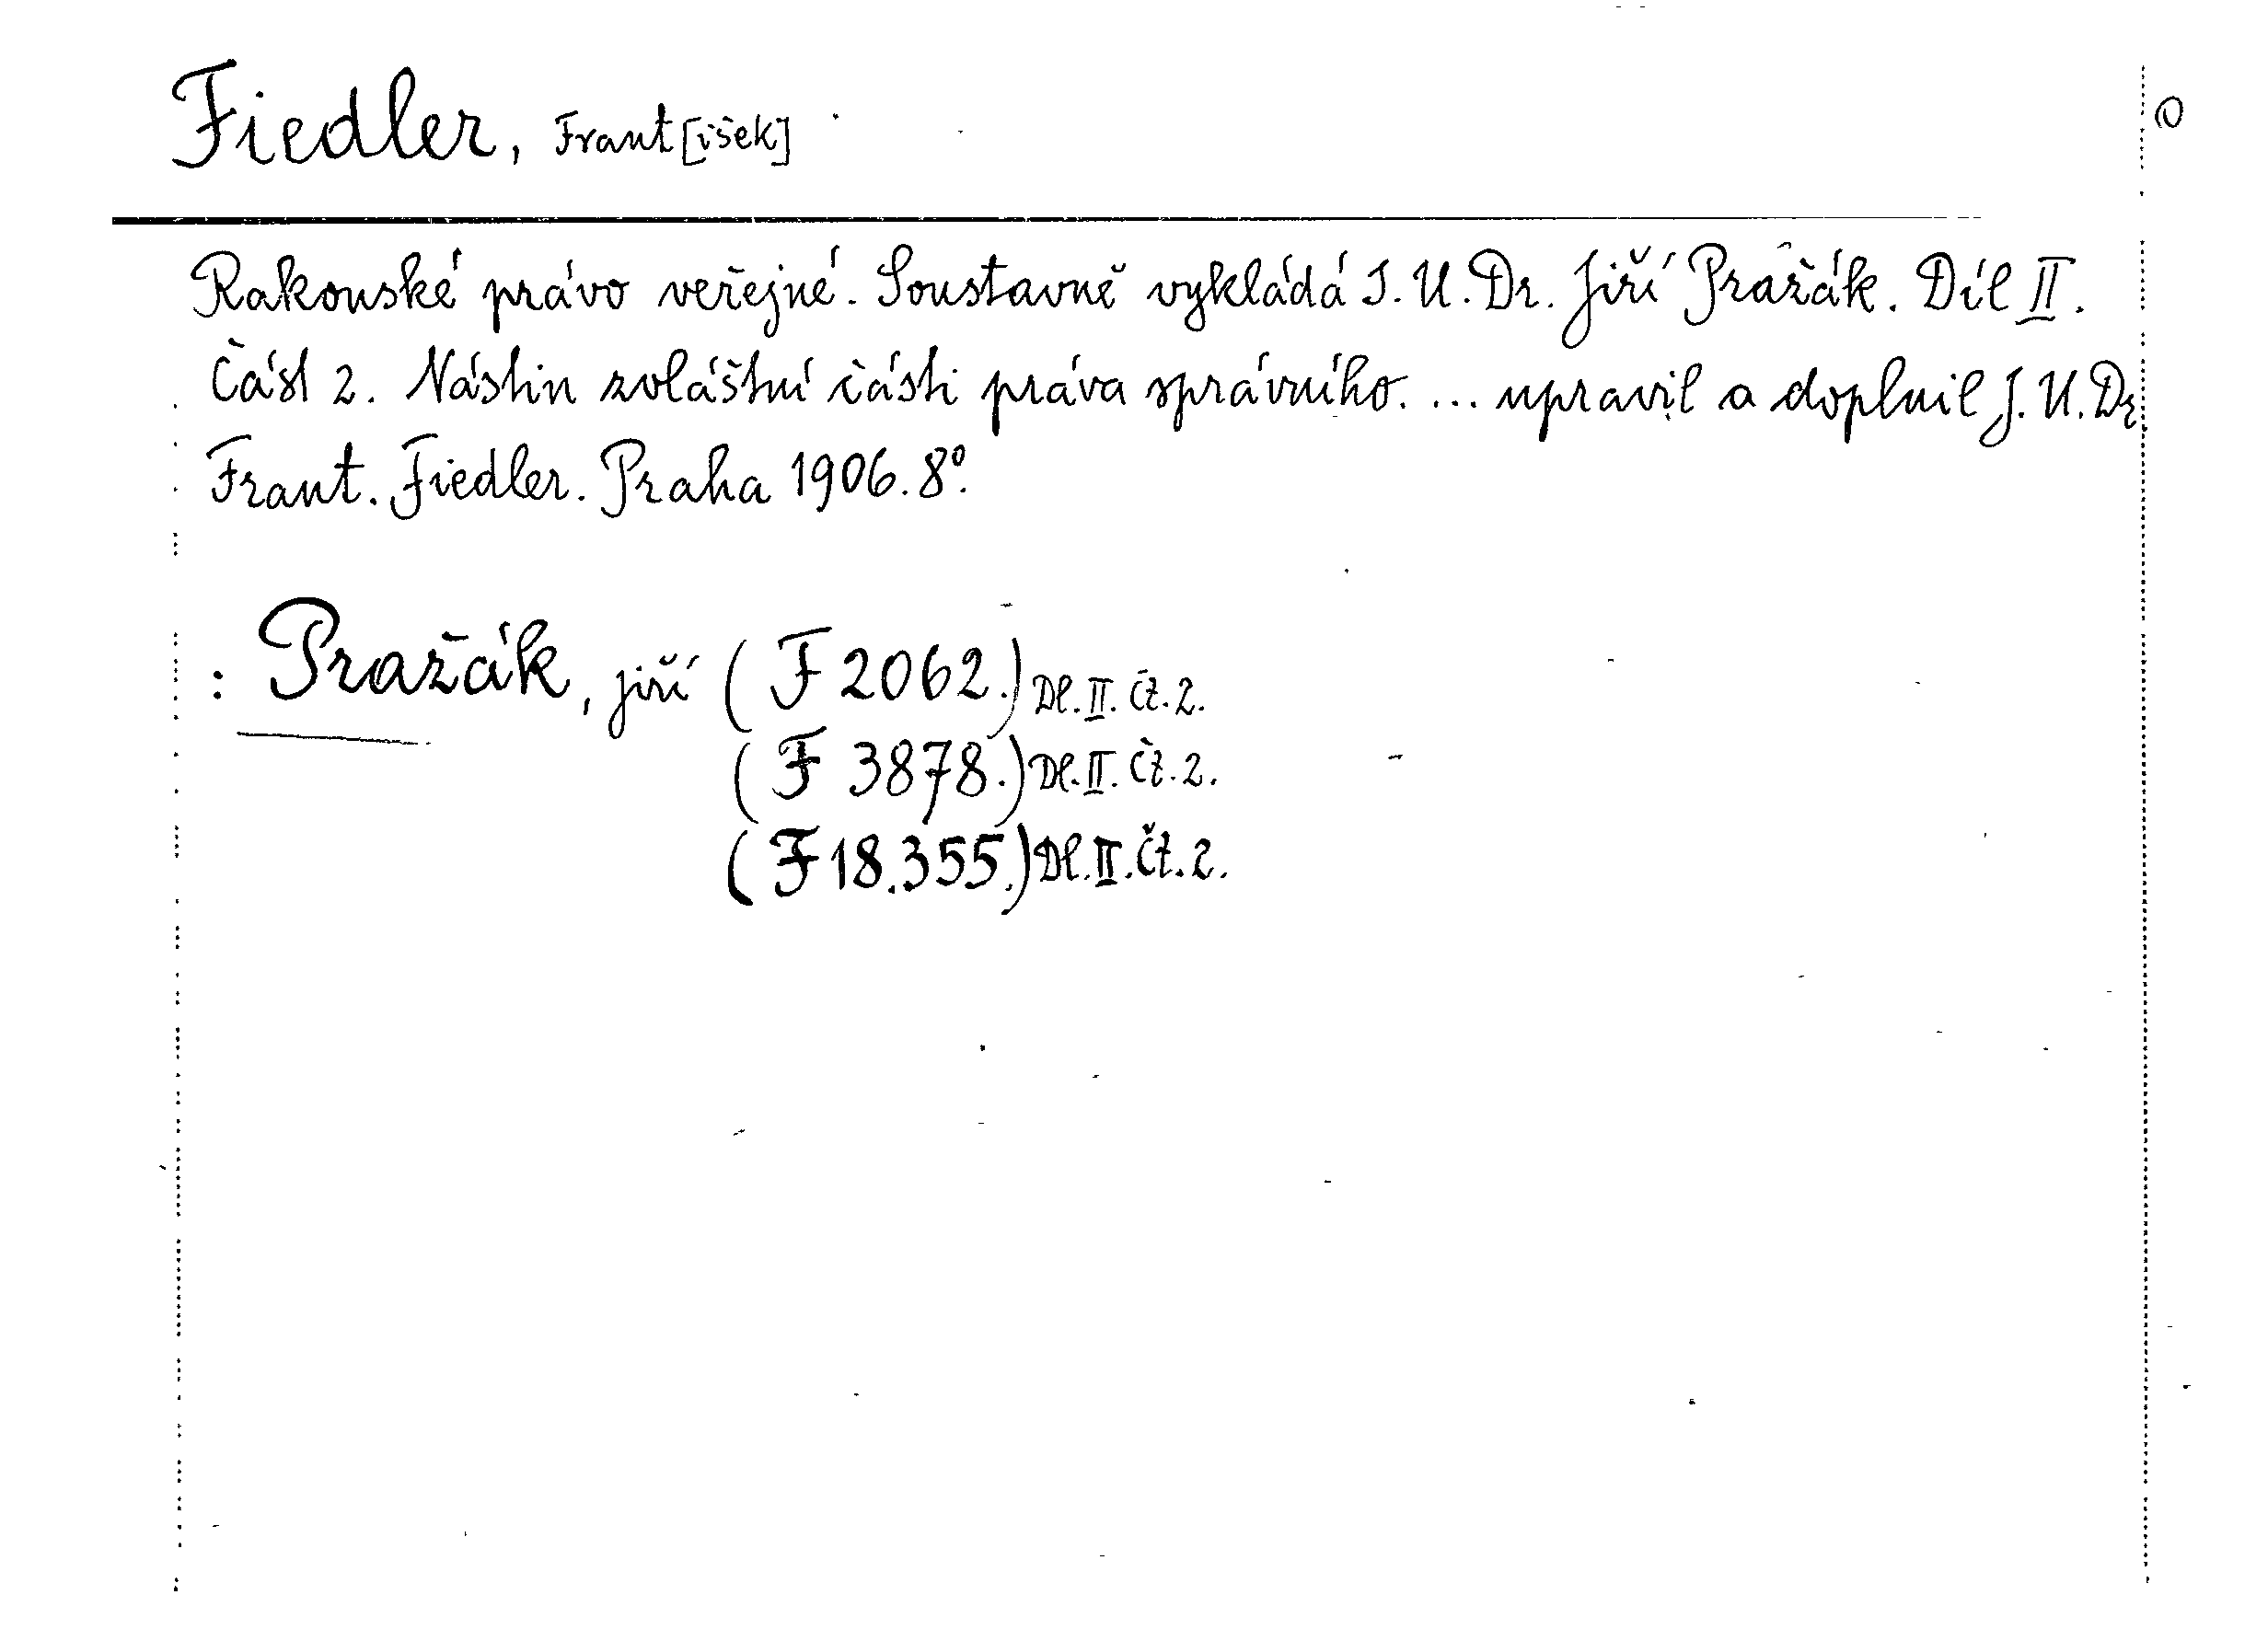 Fiedler, Frant[išek]
Rakouské právo veřejné. Soustavně vykládá J. U. Dr. Jiří Pražák. Díl II.
Část 2. Nástin zvláštní části práva správního. ... upravil a doplnil J. U. Dr.
Frant. Fiedler. Praha 1906. 8°.
: Pražák, Jiří (F 2062.) Dl. II. Čt. 2.
(F 3878.) Dl. II. Čt. 2.
(F 18.355.) Dl. II. Čt. 2.